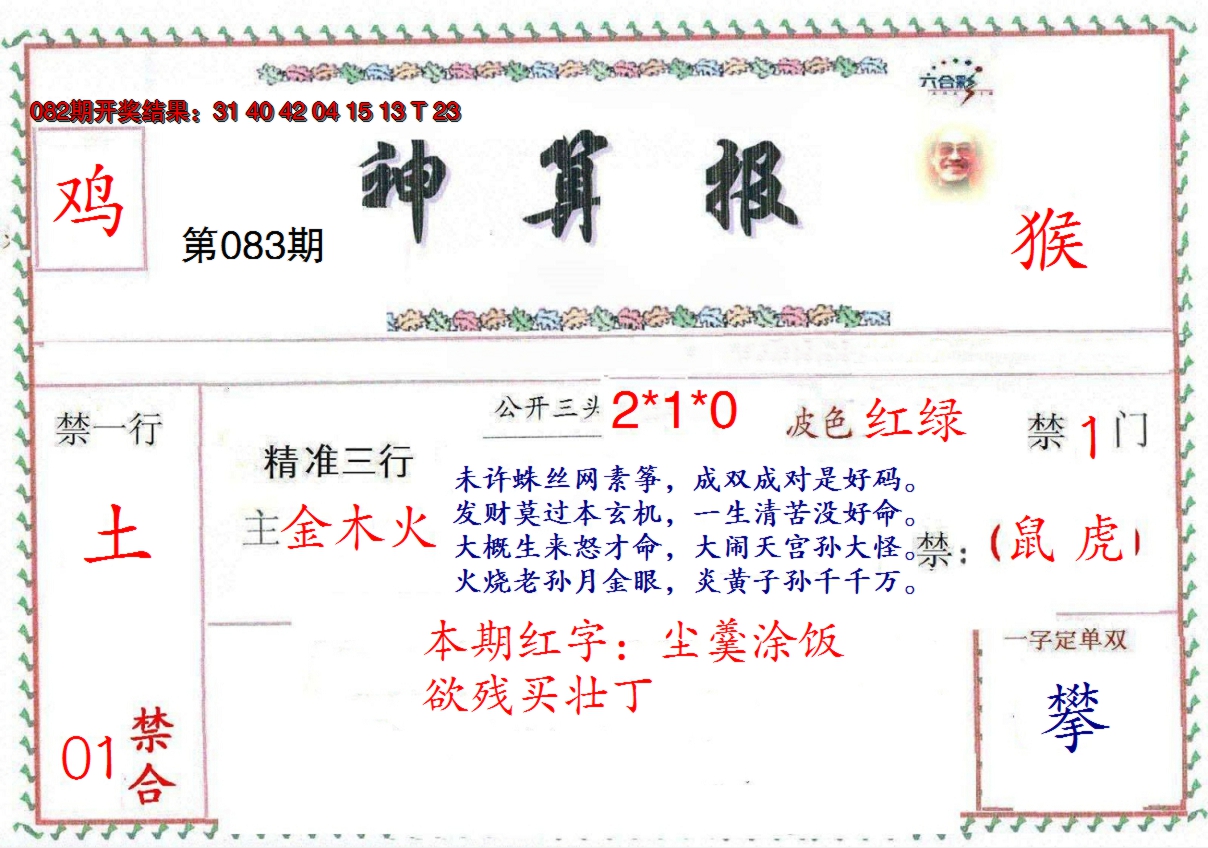 六合彩
082期开奖结果：31 40 42 04 15 13 T 23
神算报
鸡
第083期
猴
禁一行
土
01 禁合
精准三行
主金木火
公开三头 2*1*0
波色 红绿
禁1门
未许蛛丝网素筝，成双成对是好码。
发财莫过本玄机，一生清苦没好命。
大概生来怒才命，大闹天宫孙大怪。
火烧老孙月金眼，炎黄子孙千千万。
禁：（鼠 虎）
本期红字：尘羹涂饭
欲残买壮丁
一字定单双
攀